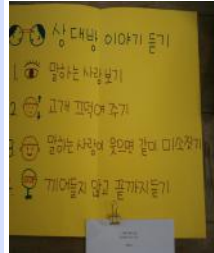 상대방 이야기 듣기
1. 말하는 사람 보기
2. 고개 끄덕여 주기
3. 말하는 사람이 웃으면 같이 미소짓기
끼어들지 않고 끝까지 듣기